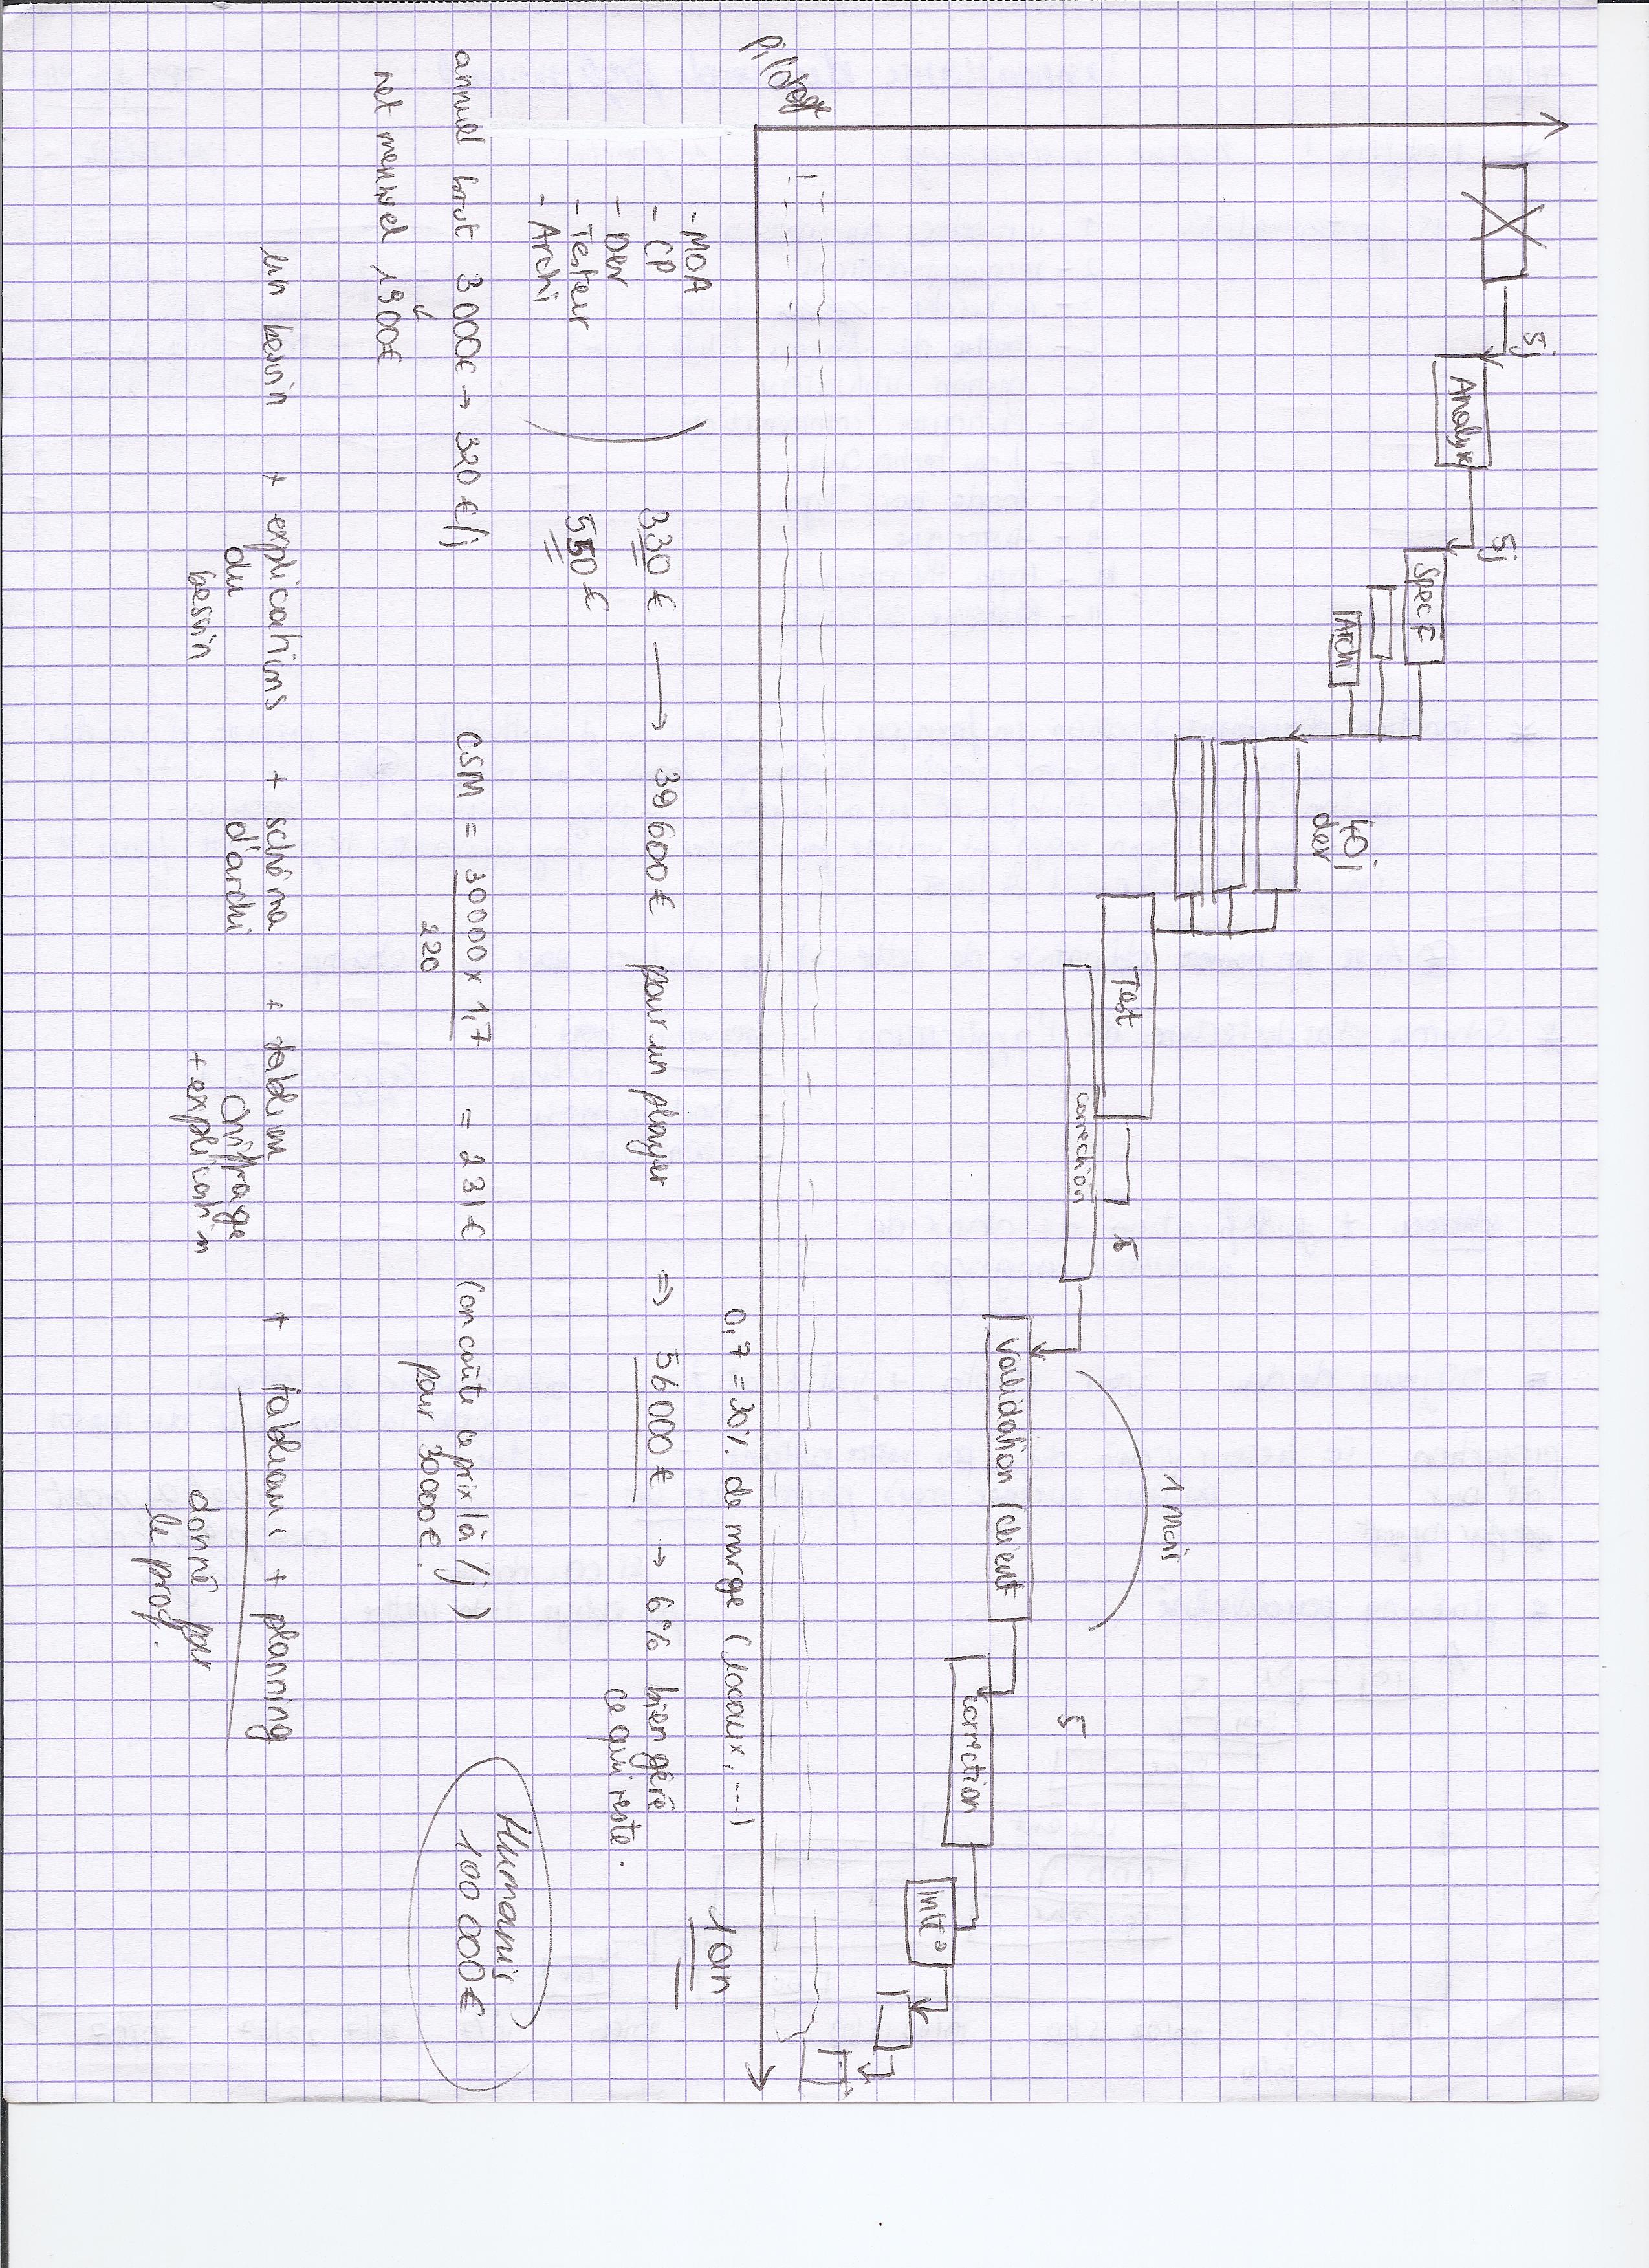 5j
Analyse
5j
Spec F
Archi
40j
dev
Test
correction
5
Validation (client
1 Mois
correction
5
Pilotage
0,7 = 30% de marge (locaux, ...)
1 an
- MOA
- CP
- Dev
- Testeur
- Archi
330 € → 39 600 € pour un player ⇒ 56 000 € → 6% bien géré
ce qui reste.
550 €
annuel brut 3000€ → 320 €/j
CSM = 30000 x 1,7 / 220 = 231 € (on coûte ce prix là /j)
pour 30000€.
net mensuel 1900€
Humanis
100 000€
un besoin + explications du besoin + schéma d'archi + tableau chiffrage + explication + tableau + planning
donné par
le prof.